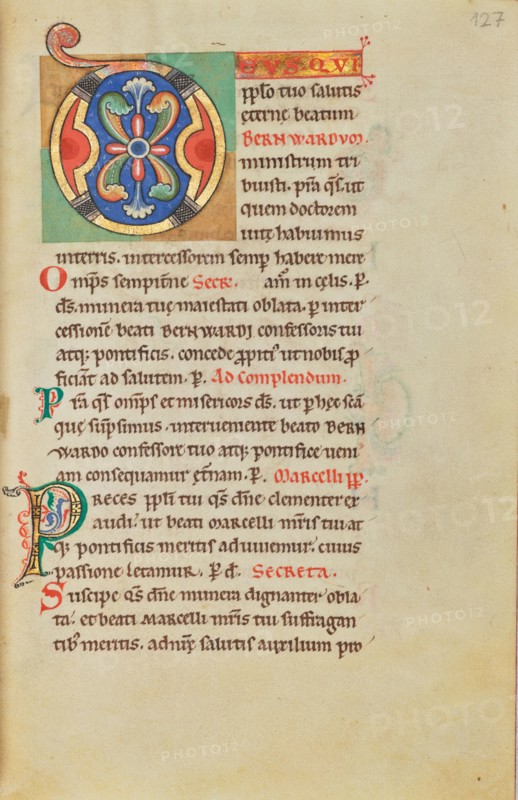 127
DEUS QUI
pplo tuo salutis
eterne beatum
BERNWARDUM
ministrum tri
buisti. p̄ra q̄s. ut
quem doctorem
vite habuimus
in terris. intercessorem semp̄ habere mere
Omp̄s sempit̄ne Secr̄. am̄ in celis. P.
ds̄. munera tue maiestati oblata. p̄ inter
cessionē beati BERNWARDI confessoris tui
atq; pontificis. concede p̄piti' ut nobis p̄
ficiant ad salutem. P. Ad complendum.
Pr̄a q̄s om̄ps et misericors ds̄. ut p̄ hec sc̄a
que sūpsimus. interveniente beato BERN
WARDO confessore tuo atq; pontifice veni
am consequamur et̄nam. P. Marcelli pp̄.
PRECES pp̄li tui q̄s dn̄e clementer ex
audi. ut beati Marcelli m̄ris tui at
q; pontificis meritis adiuvemur. cuius
passione letamur. P. d̄. SECRETA.
Suscipe q̄s dn̄e munera dignanter obla
ta. et beati Marcelli m̄ris tui suffragan
tib; meritis. ad nr̄e salutis auxilium pro
PHOTO12